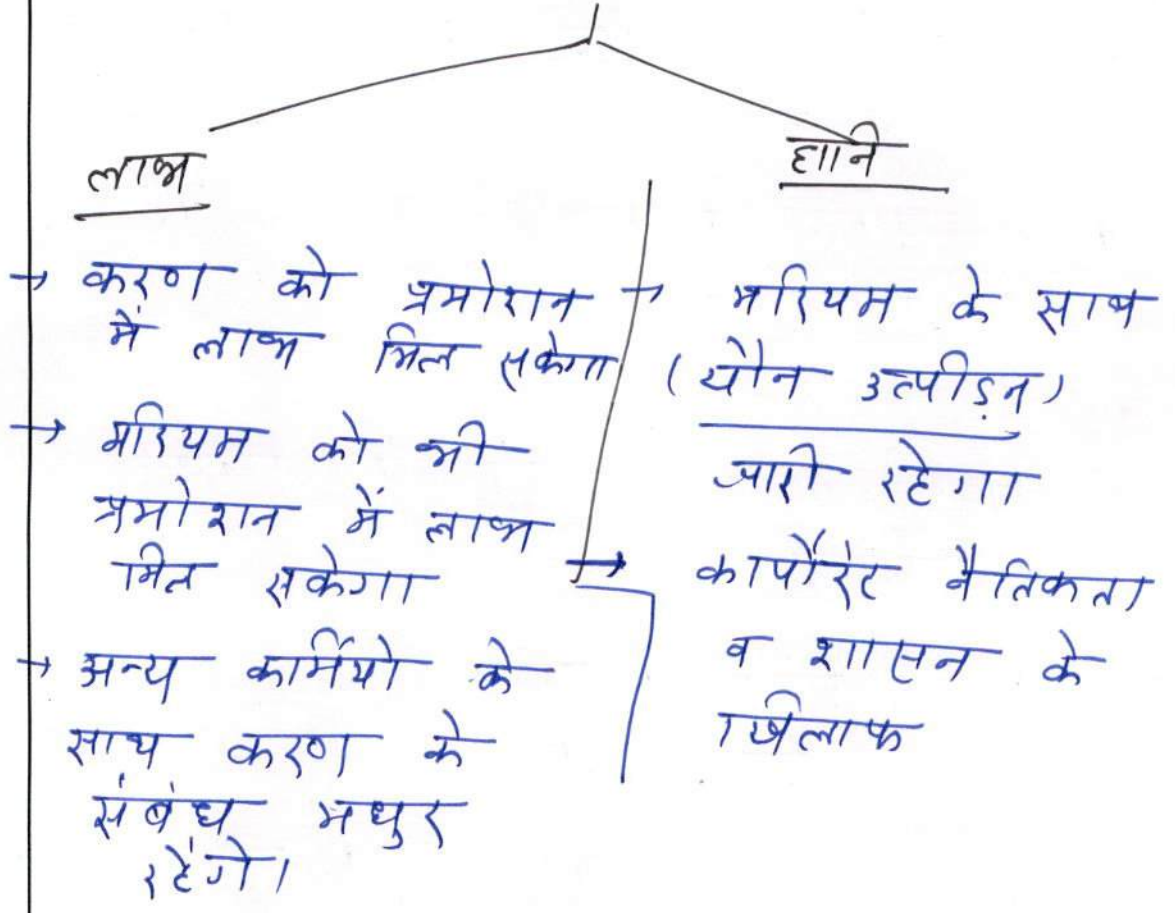 लाभ
→ करण को प्रमोशन
में लाभ मिल सकेगा
→ मरियम को भी
प्रमोशन में लाभ
मिल सकेगा
→ अन्य कर्मियो के
साथ करण के
संबंध मधुर
रहेंगे।
हानि
→ मरियम के साथ
(यौन उत्पीड़न)
जारी रहेगा
→ कार्पोरेट नैतिकता
व शासन के
खिलाफ